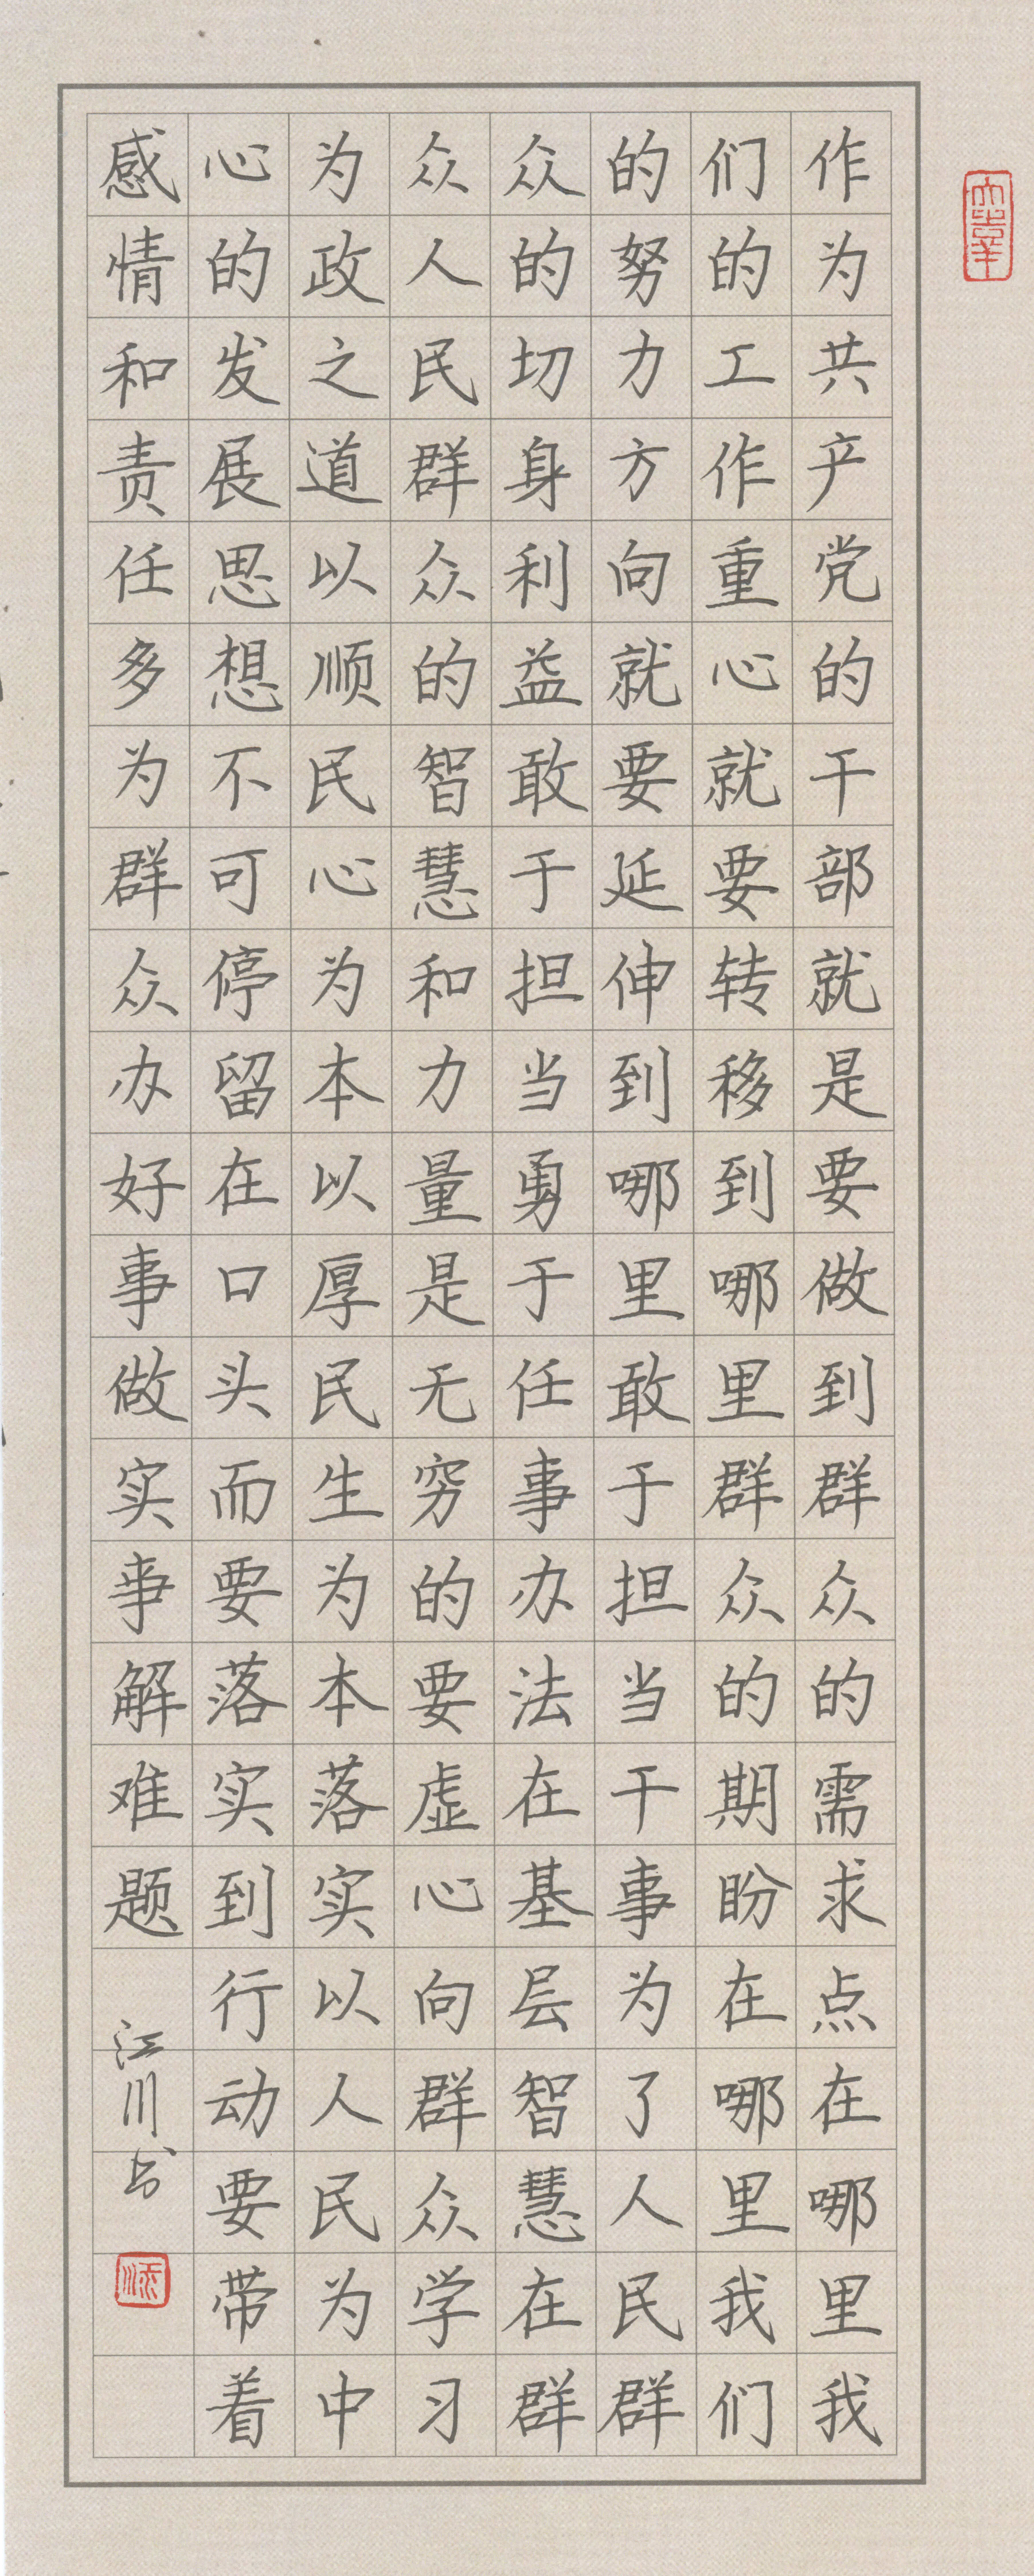 作为共产党的干部就是要做到群众的需求点在哪里我
们的工作重心就要转移到哪里群众的期盼在哪里我们
的努力方向就要延伸到哪里敢于担当干事为了人民群
众的切身利益敢于担当勇于任事办法在基层智慧在群
众人民群众的智慧和力量是无穷的要虚心向群众学习
为政之道以顺民心为本以厚民生为本落实以人民为中
心的发展思想不可停留在口头而要落实到行动要带着
感情和责任多为群众办好事做实事解难题
江川书